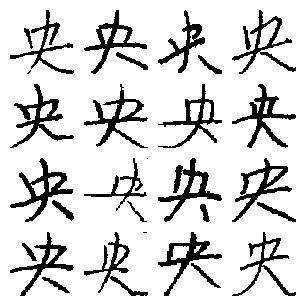 央央央央
央央央央
央央央央
央央央央